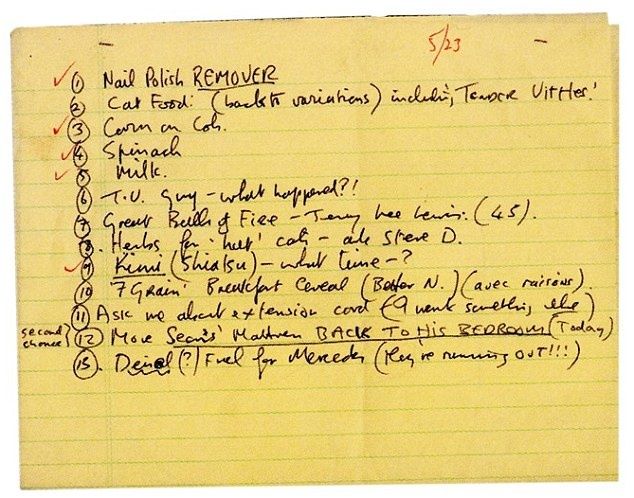 5/23
① Nail Polish REMOVER
② Cat Food: (back to variations) including TENDER VITTLES!
③ Corn on Cob.
④ Spinach
⑤ Milk.
⑥ T.V. Guy – what happened?!
⑦ Great Balls of Fire – Jerry Lee Lewis. (45).
⑧. Herbs for 'hurt' cat – ask Steve D.
⑨ Kimi (Shiatsu) – what time –?
⑩ '7 Grain' Breakfast Cereal (Better N.) (avec raisins).
⑪ Ask me about extension cord (I want something else)
second chance } ⑫ Move Sean's' Mattress BACK TO HIS BEDROOM (Today)
⑬. (?) Fuel for Mercedes (they're running OUT!!!)